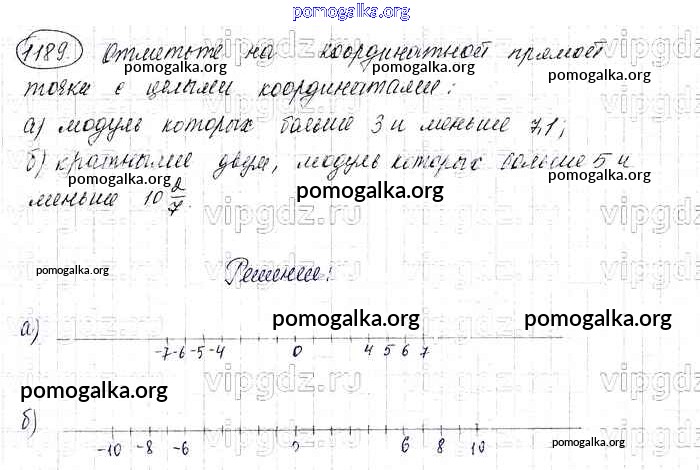 pomogalka.org
1189. Отметьте на координатной прямой
pomogalka.org pomogalka.org
точки с целыми координатами:
pomogalka.org
а) модуль которых больше 3 и меньше 7,1;
б) кратными двум, модуль которых больше 5 и
pomogalka.org pomogalka.org pomogalka.org
меньше 10 2/7.
vipgdz.ru
Решение:
pomogalka.org
а) pomogalka.org pomogalka.org
-7 -6 -5 -4 0 4 5 6 7
pomogalka.org
vipgdz.ru
б)
-10 -8 -6 0 6 8 10
pomogalka.org